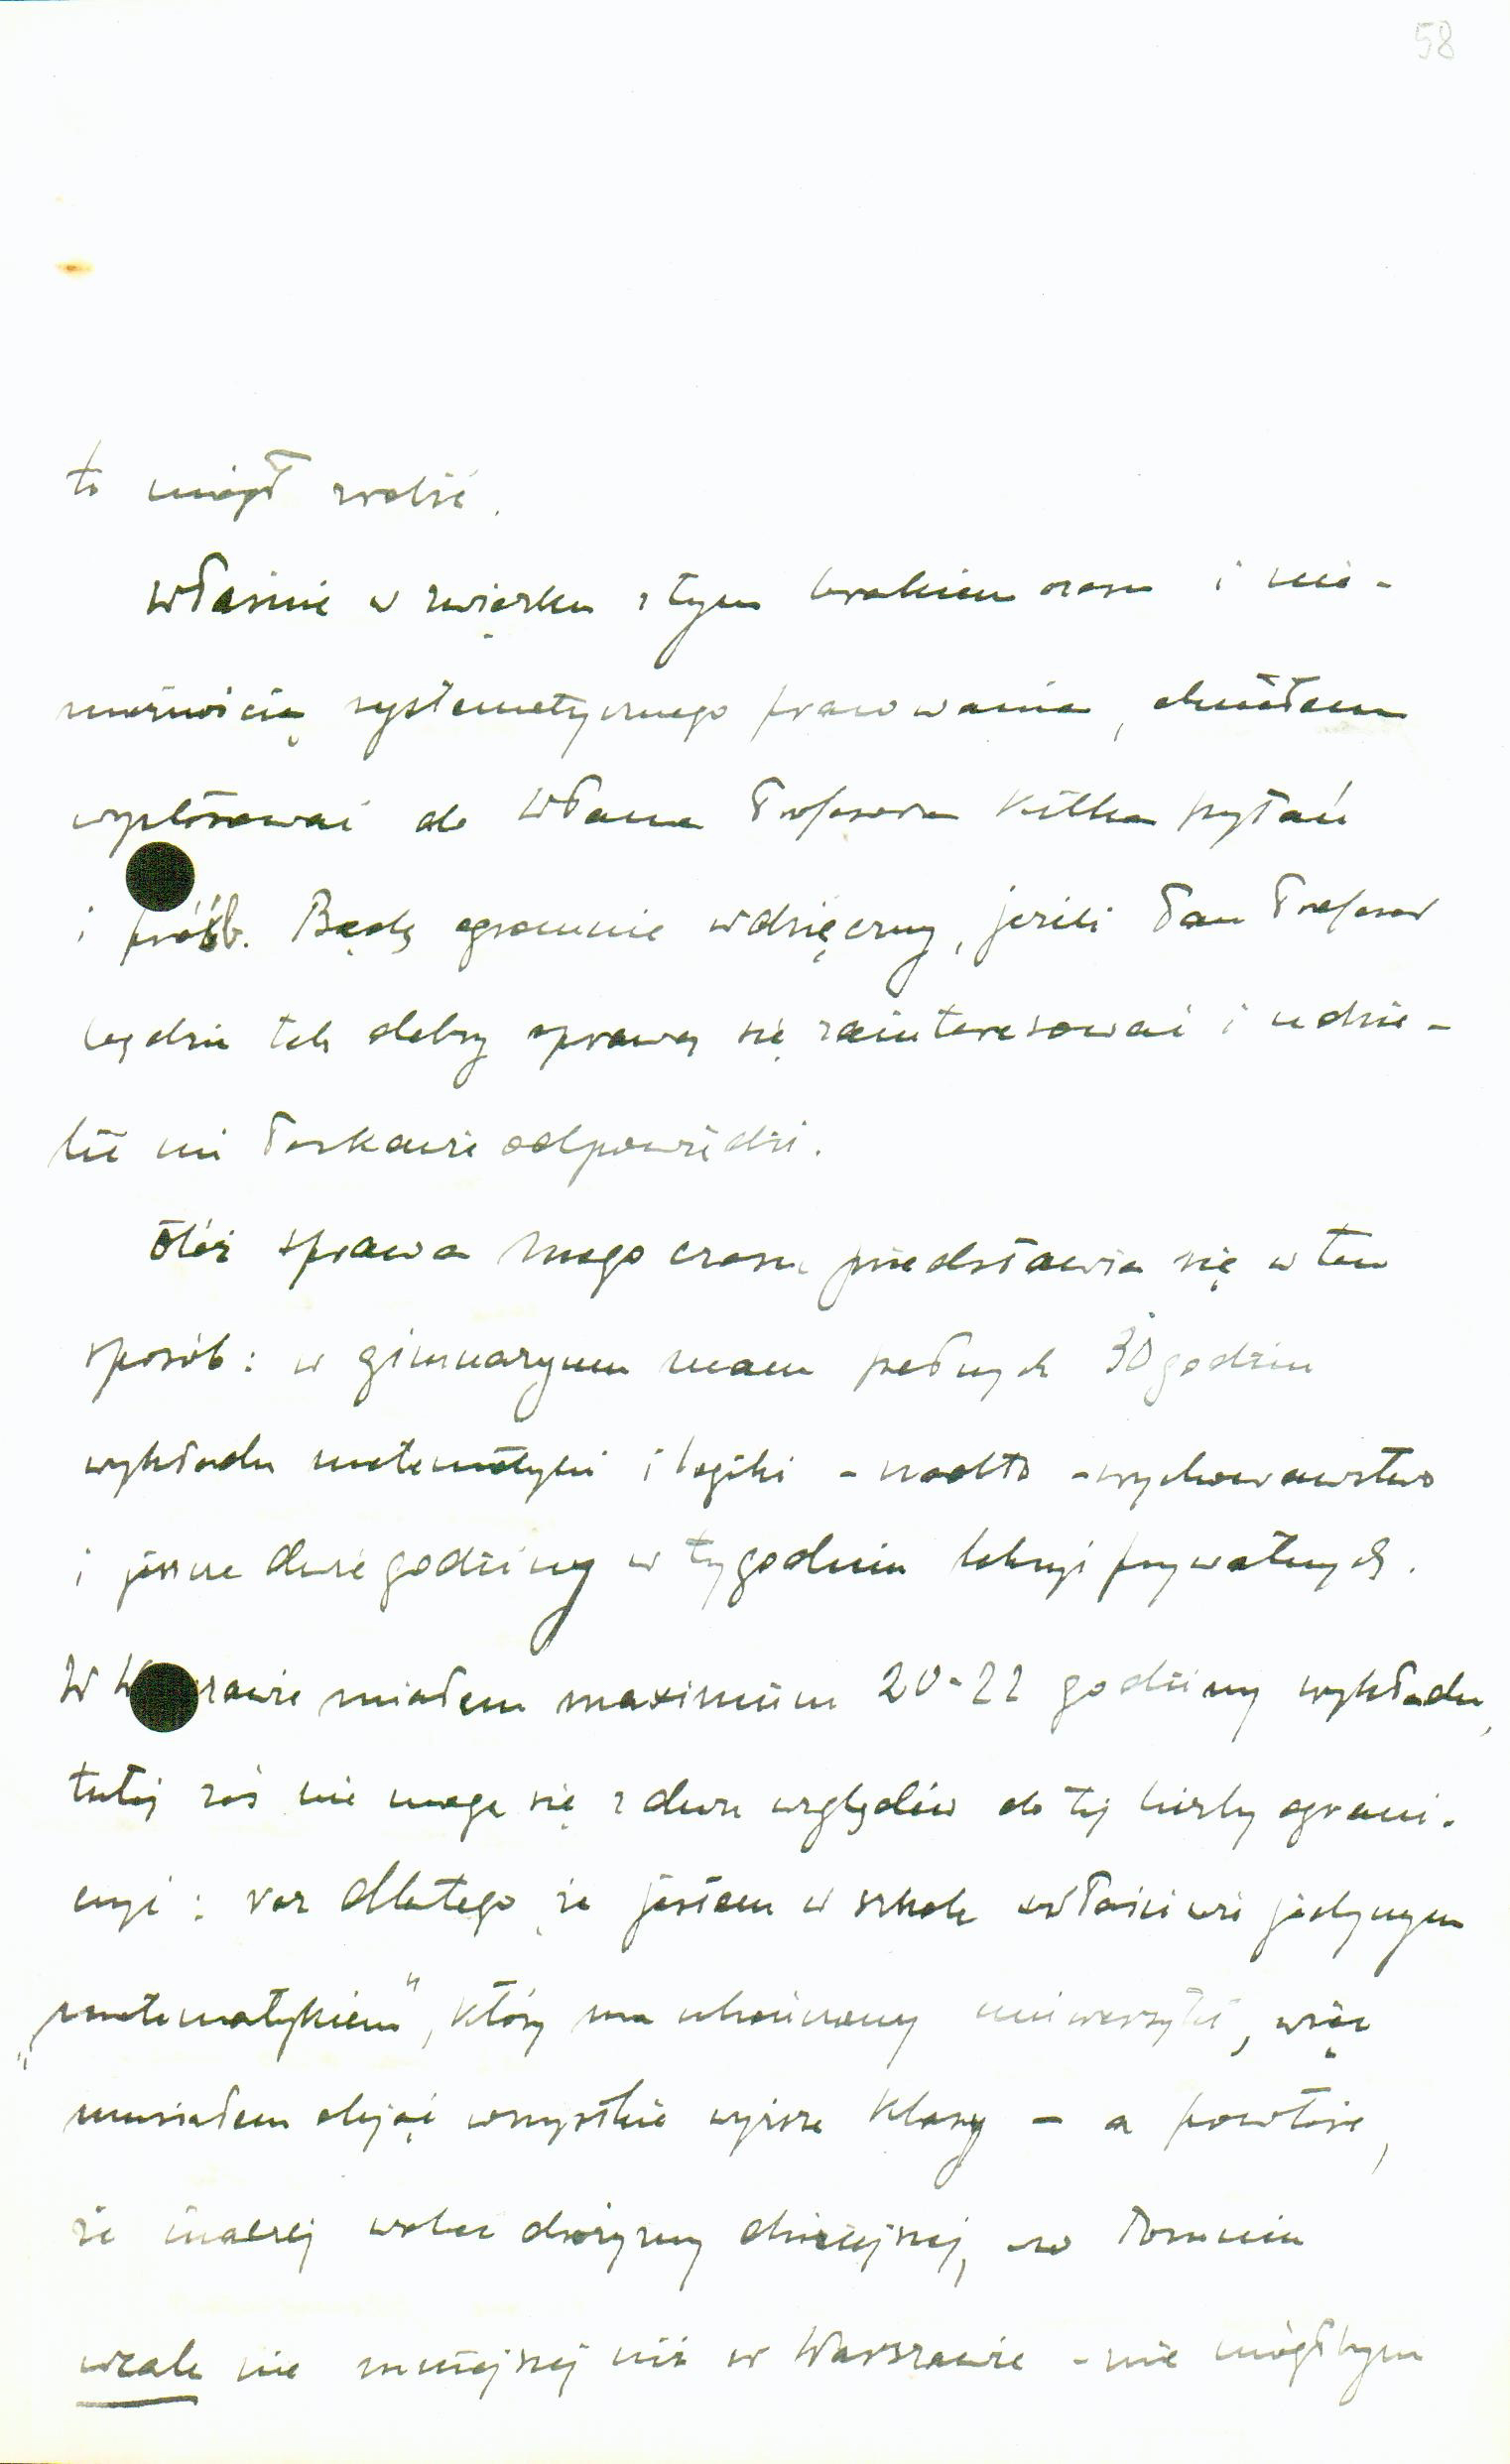 58
to mógł zrobić.
Właśnie w związku z tym brakiem czasu i nie-
możnością systematycznego pracowania, chciałem
wystosować do WPana Profesora kilka pytań
i próśb. Będę ogromnie wdzięczny, jeżeli Pan Profesor
będzie tak dobry sprawą się zainteresować i udzie-
lić mi łaskawie odpowiedzi.
Otóż sprawa mego czasu przedstawia się w ten
sposób: w gimnazjum mam pełnych 30 godzin
wykładu matematyki i logiki - nadto - wychowawstwo
i jeszcze dwie godziny w tygodniu lekcyi prywatnych.
W Warszawie miałem maximum 20-22 godziny wykładu,
tutaj zaś nie mogę się z dwu względów do tej liczby ograni-
czyć: raz dlatego, że jestem w szkole właściwie jedynym
„matematykiem", który ma ukończony uniwersytet, więc
musiałem objąć wszystkie wyższe klasy - a powtóre,
że inaczej wobec drożyzny dzisiejszej, w Toruniu
wcale nie mniejszej niż w Warszawie - nie mógłbym